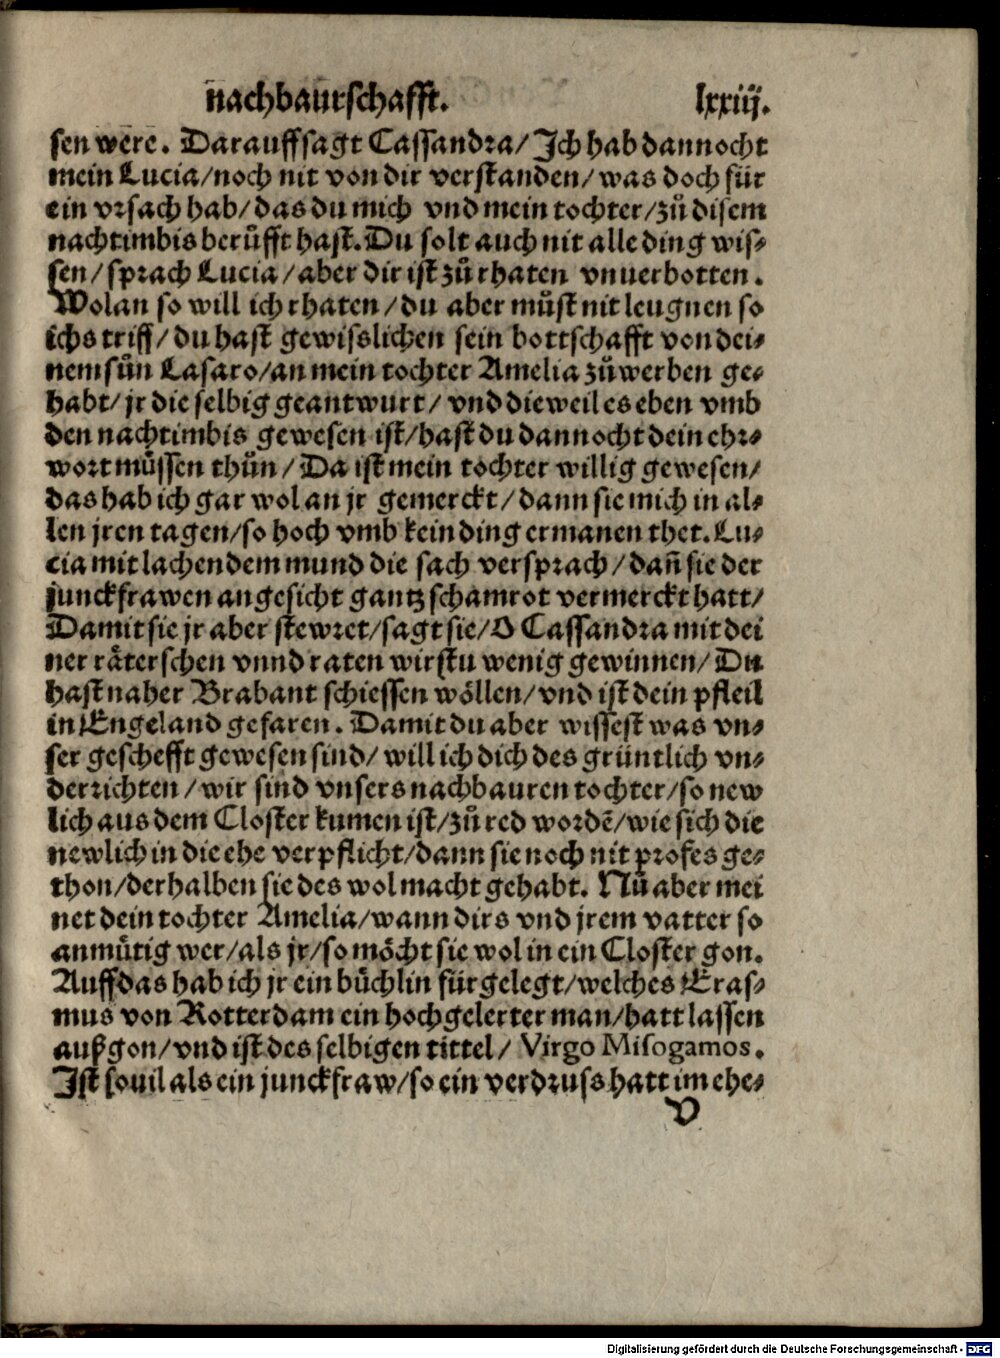 nachbaurschafft. lxxiij.
sen were. Darauff sagt Cassandra/ Ich hab dannocht
mein Lucia/noch nit von dir verstanden/was doch für
ein vrsach hab/das du mich vnd mein tochter/zů disem
nachtimbis berůfft hast. Du solt auch nit alle ding wis⸗
sen/sprach Lucia/aber dir ist zů rhaten vnuerbotten.
Wolan so will ich rhaten/du aber můst nit leugnen so
ichs triff/du hast gewisslichen sein bottschafft von dei⸗
nem sůn Lasaro/an mein tochter Amelia zů werben ge⸗
habt/jr die selbig geantwurt/vnd dieweil es eben vmb
den nachtimbis gewesen ist/hast du dannocht dein ehr⸗
wort můssen thůn/Da ist mein tochter willig gewesen/
das hab ich gar wol an jr gemerckt/dann sie mich in al⸗
len jren tagen/so hoch vmb kein ding ermanen thet. Lu⸗
cia mit lachendem mund die sach versprach/dañ sie der
junckfrawen angesicht gantz schamrot vermerckt hatt/
Damit sie jr aber stewret/sagt sie/O Cassandra mit dei
ner råterschen vnnd raten wirstu wenig gewinnen/Du
hast naher Brabant schiessen wöllen/vnd ist dein pfleil
in Engeland gefaren. Damit du aber wissest was vn⸗
ser geschefft gewesen sind/will ich dich des grüntlich vn⸗
derrichten/wir sind vnsers nachbauren tochter/so new
lich aus dem Closter kumen ist/zů red wordē/wie sich die
newlich in die ehe verpflicht/dann sie noch nit profes ge⸗
thon/derhalben sie des wol macht gehabt. Nů aber mei
net dein tochter Amelia/wann dirs vnd jrem vatter so
anmůtig wer/als jr/so möcht sie wol in ein Closter gon.
Auff das hab ich jr ein bůchlin fürgelegt/welches Eras⸗
mus von Rotterdam ein hochgelerter man/hatt lassen
außgon/vnd ist des selbigen tittel/ Virgo Misogamos.
Ist souil als ein junckfraw/so ein verdruss hatt im ehe⸗
v
Digitalisierung gefördert durch die Deutsche Forschungsgemeinschaft - DFG